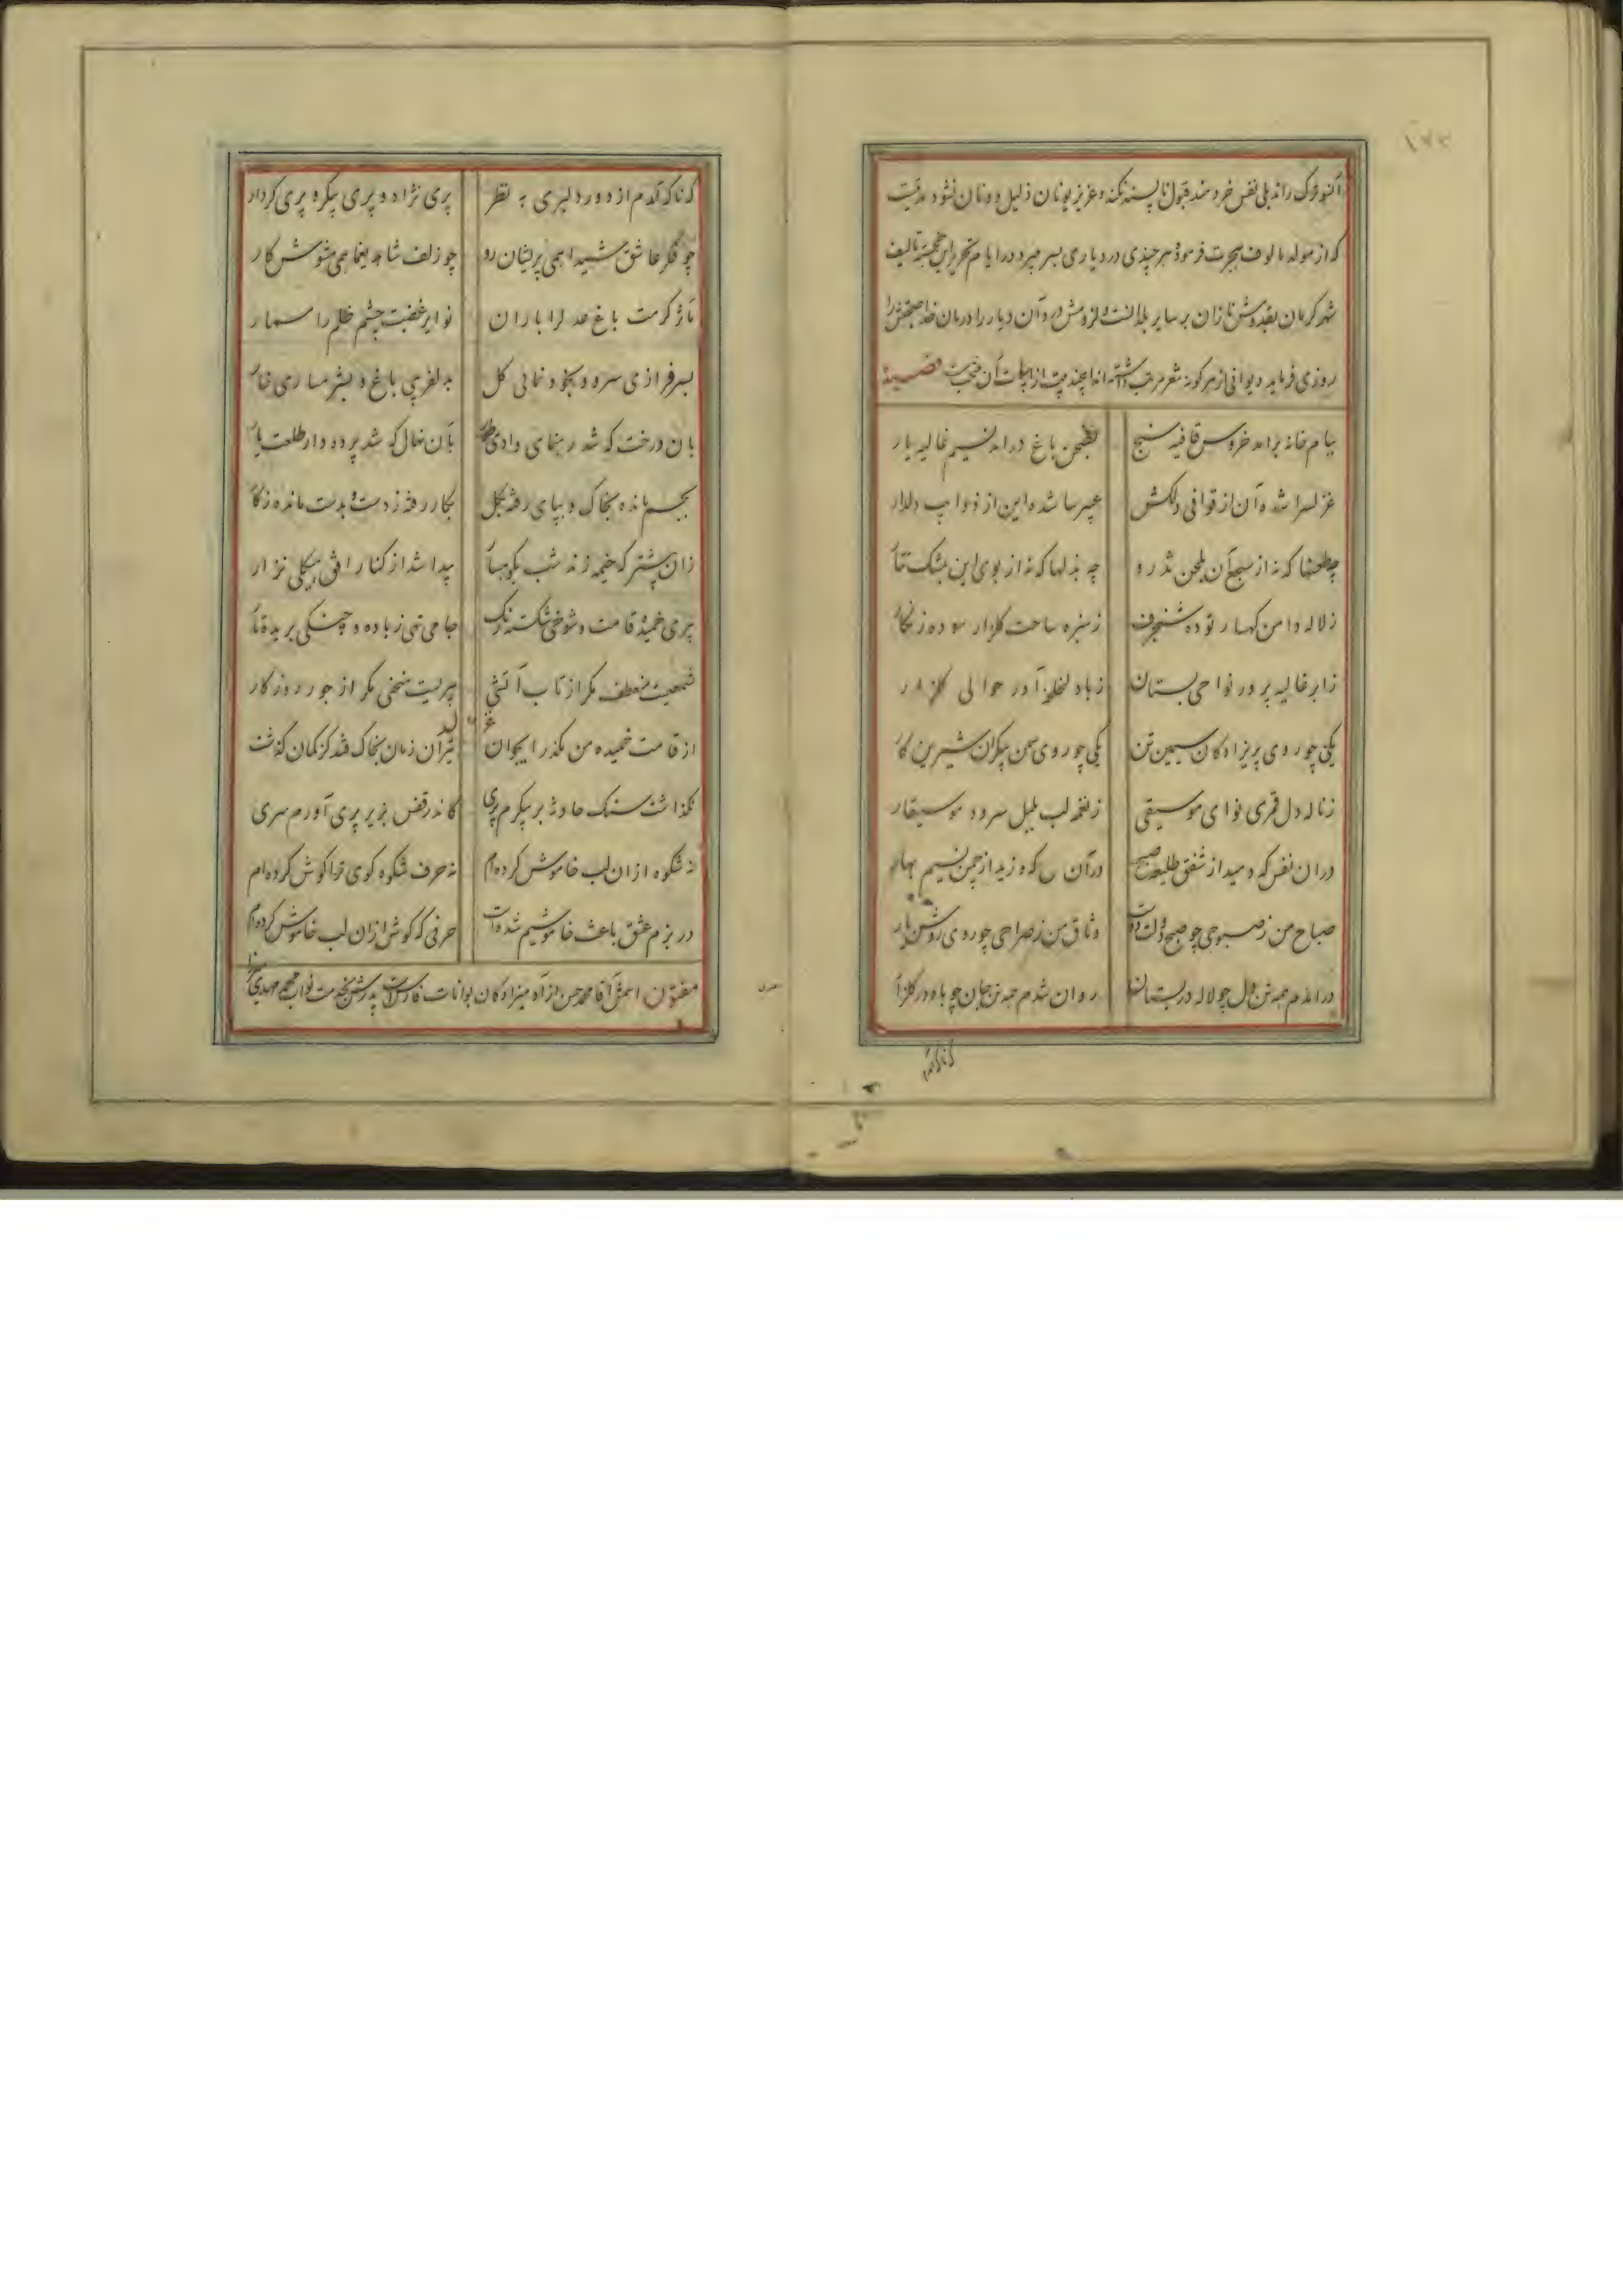 ۱۷۲
راند بلی نفس خردمند قبول ناپسند نکند و عزیز یونان ذلیل دونان نشود
که از مولد مالوف هجرت فرموده هر چندی در دیاری بسر میبرد در ایام تحریر این خجسته تالیف
شهر کرمان بقدومش نازان بر سایر بلدانست و لزومش در آن دیار را درمان
روزی فرماید دیوانی از هر گونه شعر مرتب داشته‌اند این چند بیت از ابیات آن منتخب قصیده
ببام خانه برآمد خروس قافیه سنج بصحن باغ درآمد نسیم غالیه بار
غزلسرا شده آن از قوافی دلکش عبیرسا شده این از ذوایب دلدار
چه طعنها که نه از سجع آن بلحن تذرو چه بذلها که نه از بوی این بمشک تتار
ز لاله دامن کهسار توده شنجرف ز سبزه ساحت گلزار سوده زنگار
ز ابر غالیه پرور نواحی بستان ز باد لخلخه آور حوالی گلزار
یکی چو روی پریزادگان سیمین تن یکی چو روی سمن پیکران شیرین کار
ز ناله دل قمری نوای موسیقی ز نغمه لب بلبل سرود موسیقار
در ان نفس که دمید از شفق طلیعه صبح در آن که وزید از چمن نسیم بهار
صباح من ز صبوحی چو صبح دولت دوست وثاق من ز صراحی چو روی روشن یار
درآمدم همه تن دل چو لاله در بستان روان شدم همه تن جان چو باد در گلزار
که ناگه آمدم از دور دلبری به نظر پری نژاد و پری پیکر و پری کردار
چو فکر عاشق شیدا همی پریشان رو چو زلف شاهد یغما همی مشوش کار
کرمت باغ عدل را باران نوایر غضبت چشم ظلم را مسمار
بسرفرازی سرو و بخود نمائی گل بدلفریبی باغ و
بان درخت که شد رهنمای وادی طور بآن نهال که شد پرده دار طلعت یار
بجسم مانده بخاک و بپای رفته بگل بکار رفته ز دست و بدست مانده ز کار
زان پیشتر که خیمه زند شب بکوهسار پیدا شد از کنار افق پیکلی نزار
پیری خمیده قامت و شوخی شکسته رنگ جامی تهی ز باده و چنگی بریده تار
شمعیست منعطف مگر از تاب آتشی پیریست منحنی مگر از جور روزگار
غزل
از قامت خمیده من مگذر ای جوان تیر آن زمان بخاک فتد کز کمان گذشت
نگذاشت سنگ حادثه بر پیکرم پری کاندر قفس بزیر پری آورم سری
نه شکوه از ان لب خاموش کرده‌ام نه حرف شکوه گوی ترا گوش کرده‌ام
در بزم عشق باعث خاموشیم شده است حرفی که گوش از ان لب خاموش کرده‌ام
مفتون اسمش آقا محمد حسن از میرزادگان بوانات فارس است پدرش بخدمت نواب محمد مهدی
که ناگه آمدم